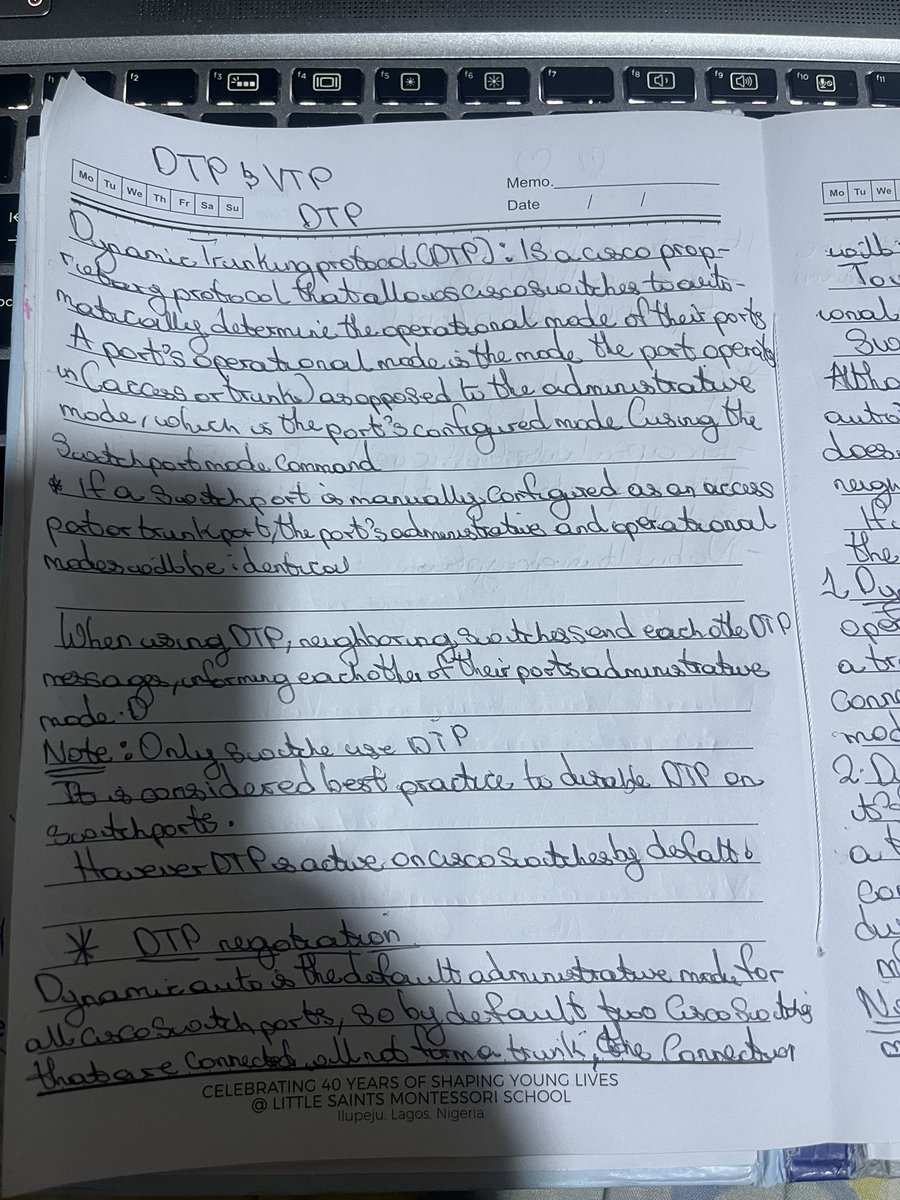 f1 f2 f3 f4 f5 f6 f7 f8 f9 f10 f11
DTP & VTP
Mo Tu We Th Fr Sa Su
Memo.
Date / /
DTP
Dynamic Trunking protocol (DTP): Is a cisco prop-
rietary protocol that allows cisco switches to auto-
matically determine the operational mode of their ports
A port's operational mode is the mode the port operates
in (access or trunk) as opposed to the administrative
mode, which is the port's configured mode (using the
Switchport mode command
* If a switchport is manually configured as an access
port or trunk port, the port's administrative and operational
modes will be identical
When using DTP, neighboring switches send each othe DTP
messages, informing each other of their ports administrative
mode.
Note: Only switche use DTP
It is considered best practice to disable DTP on
switchports.
However DTP is active on cisco switches by defalt.
* DTP negotiation
Dynamic auto is the default administrative mode for
all cisco switch ports, so by default two Cisco switches
that are connected will not form a trunk, the connection
CELEBRATING 40 YEARS OF SHAPING YOUNG LIVES
@ LITTLE SAINTS MONTESSORI SCHOOL
Ilupeju, Lagos, Nigeria
Mo Tu We
the
1. Dy
a tr
Conn
mod
2. D
a t
Con
du
No